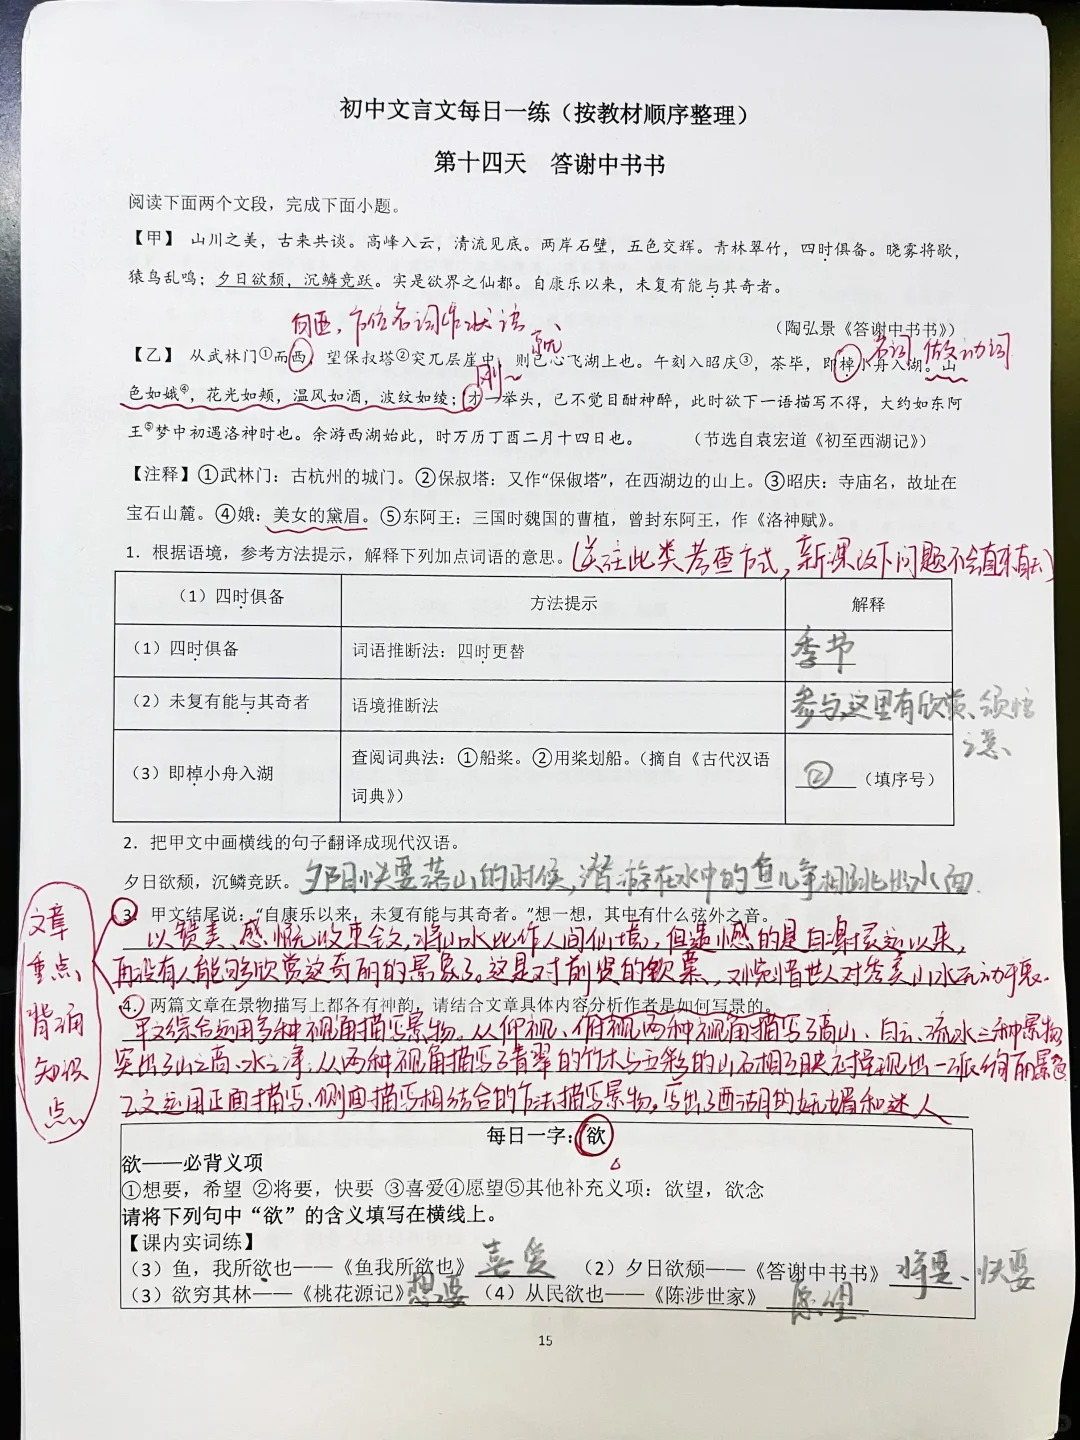 初中文言文每日一练（按教材顺序整理）
第十四天 答谢中书书
阅读下面两个文段，完成下面小题。
【甲】 山川之美，古来共谈。高峰入云，清流见底。两岸石壁，五色交辉。青林翠竹，四时俱备。晓雾将歇，
猿鸟乱鸣；夕日欲颓，沉鳞竞跃。实是欲界之仙都。自康乐以来，未复有能与其奇者。
（陶弘景《答谢中书书》）
向西，方位名词作状语
就
名词做动词
【乙】 从武林门①而西，望保叔塔②突兀层崖中，则已心飞湖上也。午刻入昭庆③，茶毕，即棹小舟入湖。山
刚
色如娥④，花光如颊，温风如酒，波纹如绫；才一举头，已不觉目酣神醉，此时欲下一语描写不得，大约如东阿
王⑤梦中初遇洛神时也。余游西湖始此，时万历丁酉二月十四日也。 （节选自袁宏道《初至西湖记》）
【注释】①武林门：古杭州的城门。②保叔塔：又作“保俶塔”，在西湖边的山上。③昭庆：寺庙名，故址在
宝石山麓。④娥：美女的黛眉。⑤东阿王：三国时魏国的曹植，曾封东阿王，作《洛神赋》。
1．根据语境，参考方法提示，解释下列加点词语的意思。（关注此类考查方式，新课改下问题不会直来直去）
（1）四时俱备 方法提示 解释
（1）四时俱备 词语推断法：四时更替 季节
（2）未复有能与其奇者 语境推断法 参与，这里有欣赏、领悟
之意
（3）即棹小舟入湖 查阅词典法：①船桨。②用桨划船。（摘自《古代汉语
词典》） ②（填序号）
2．把甲文中画横线的句子翻译成现代汉语。
夕日欲颓，沉鳞竞跃。夕阳快要落山的时候，潜游在水中的鱼儿争相跳出水面.
3．甲文结尾说：“自康乐以来，未复有能与其奇者。”想一想，其中有什么弦外之音。
文章
重点
背诵
知识
点
以赞美、感慨收束全文，将山水比作人间仙境，但遗憾的是自谢灵运以来，
再没有人能够欣赏这奇丽的景象了，这是对前贤的钦慕、对惋惜世人对秀美山水无动于衷.
4．两篇文章在景物描写上都各有神韵，请结合文章具体内容分析作者是如何写景的。
甲文综合运用多种视角描写景物。从仰视、俯视两种视角描写了高山、白云、流水三种景物
突出了山之高、水之净；从两种视角描写了青翠的竹木与五彩的山石相互映衬呈现出一派绚丽景色
乙文运用正面描写、侧面描写相结合的方法描写景物，写出了西湖的妩媚和迷人
每日一字：欲
欲——必背义项
①想要，希望 ②将要，快要 ③喜爱④愿望⑤其他补充义项：欲望，欲念
请将下列句中“欲”的含义填写在横线上。
【课内实词练】
（3）鱼，我所欲也——《鱼我所欲也》 喜爱 （2）夕日欲颓——《答谢中书书》 将要、快要
（3）欲穷其林——《桃花源记》想要 （4）从民欲也——《陈涉世家》 愿望
15